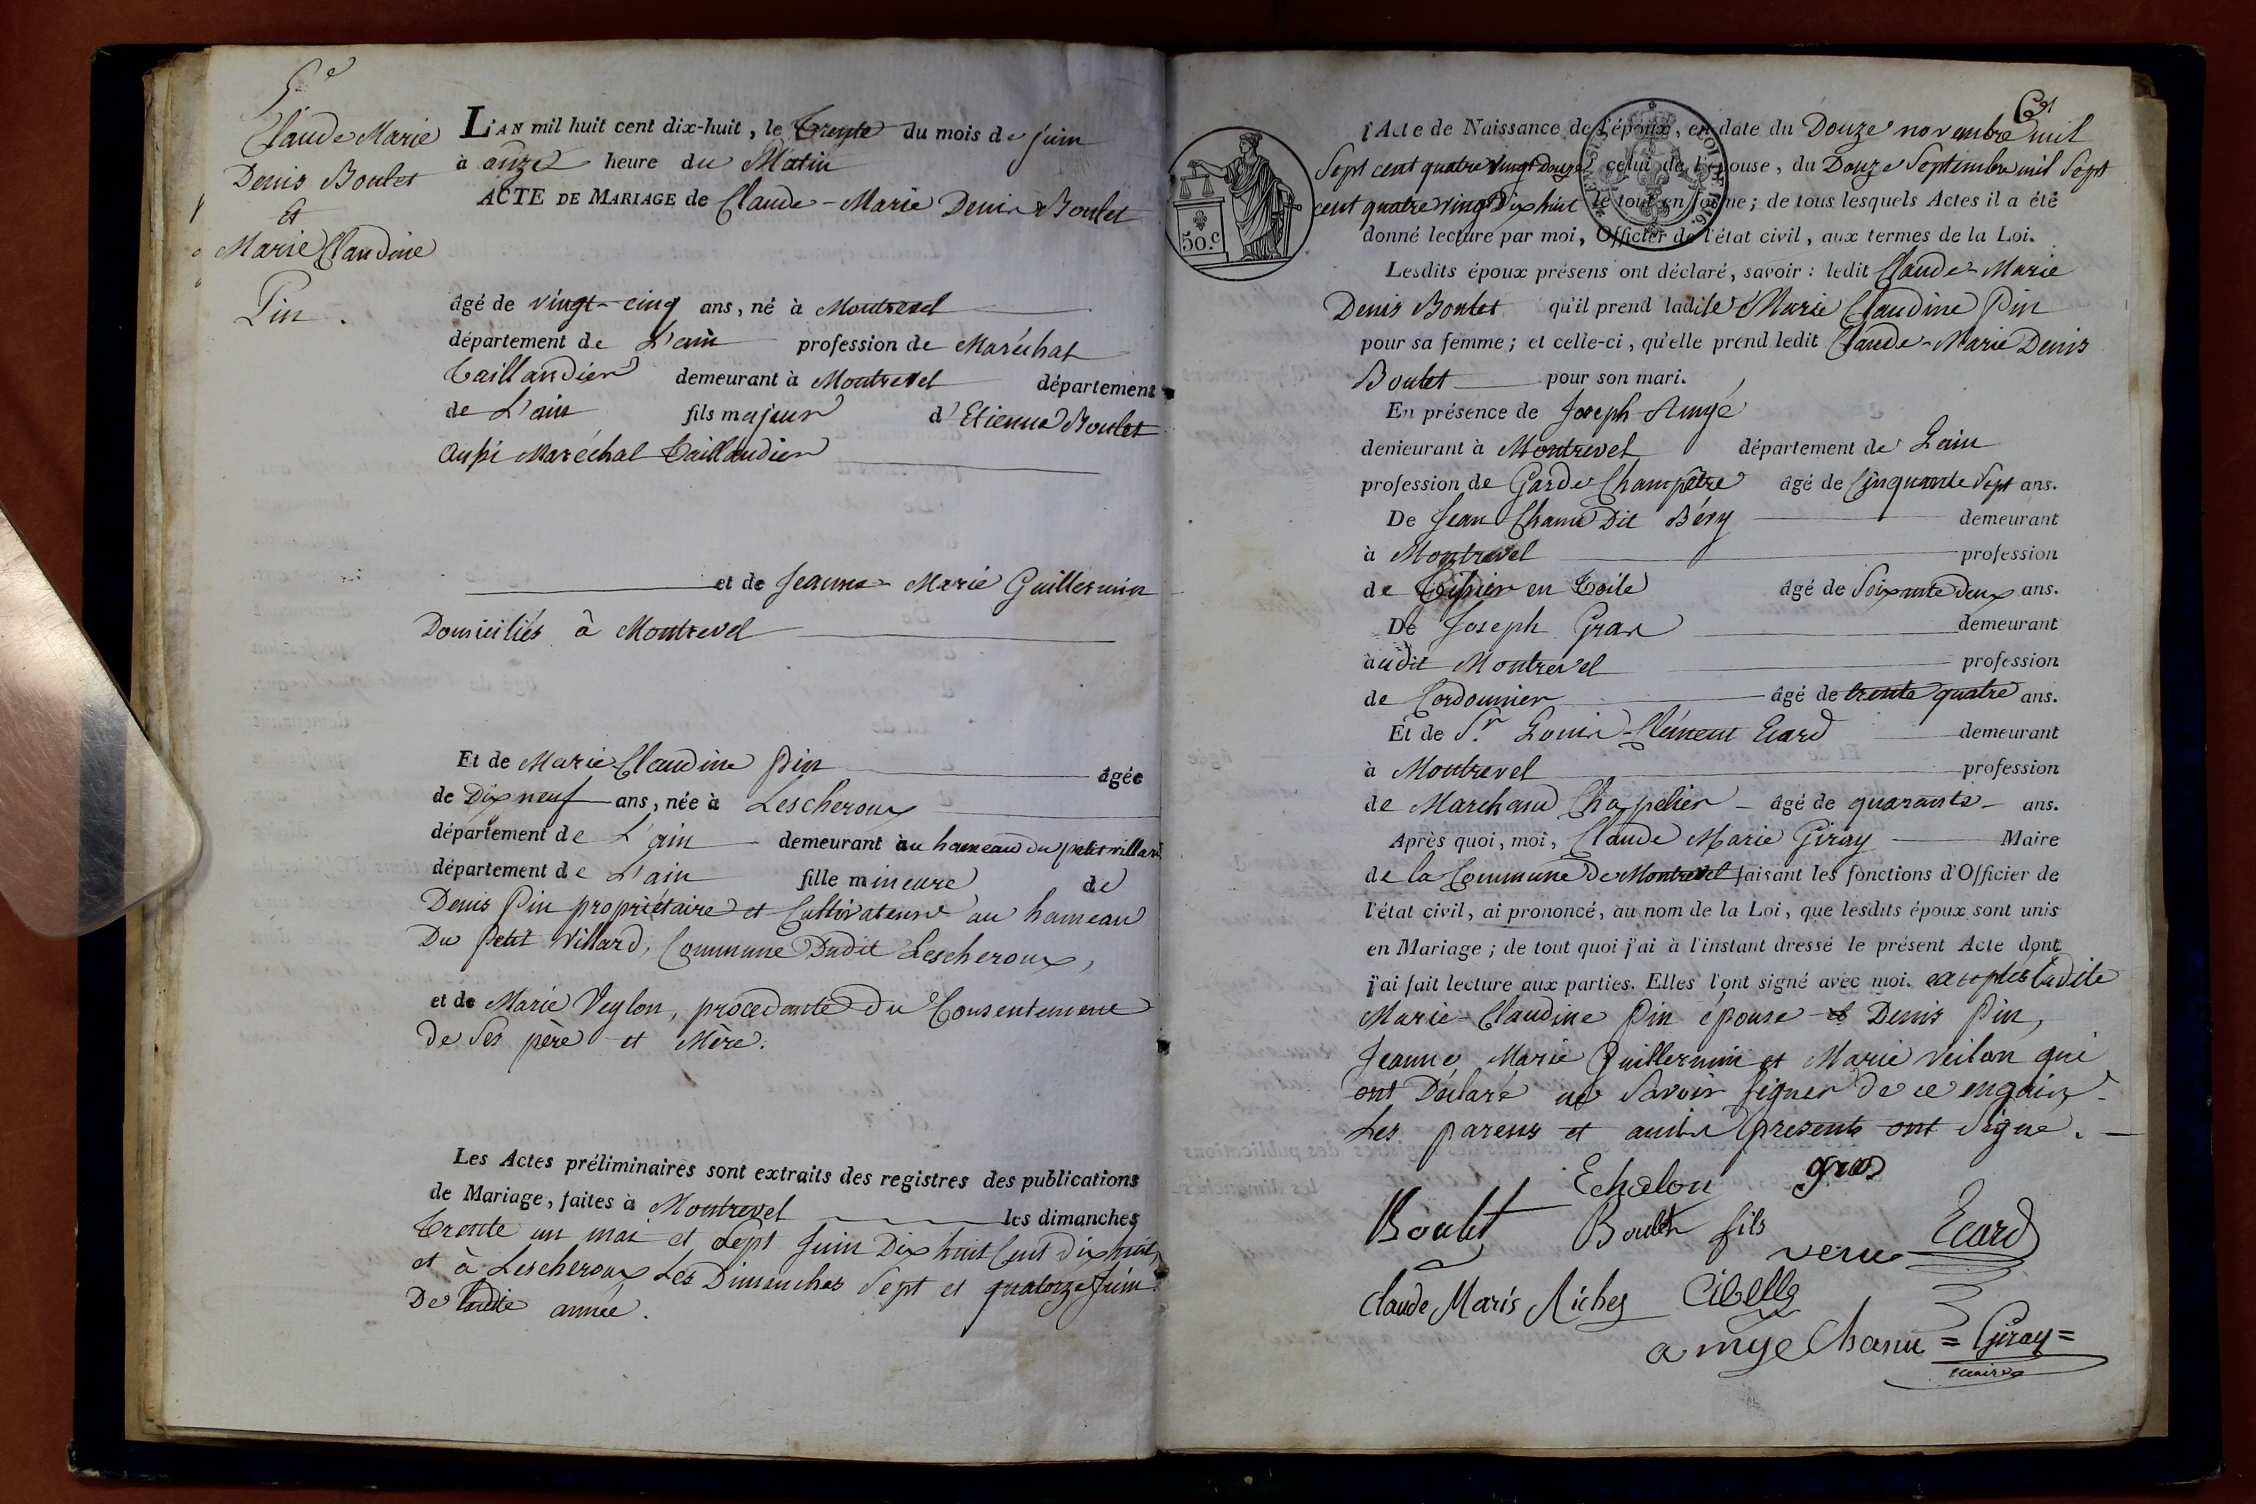 6e
Claude Marie
Denis Boulet
et
Marie Claudine
Pin.
L'AN mil huit cent dix-huit, le trente du mois de juin
à onze heure du Matin
ACTE DE MARIAGE de Claude-Marie Denis Boulet
âgé de vingt-cinq ans, né à Montrevel
département de L'ain profession de Maréchal
taillandier demeurant à Montrevel département
de L'ain fils majeur d'Etienne Boulet
aussi Maréchal Taillandier
et de Jeanne-Marie Guillermin
Domiciliés à Montrevel
Et de Marie-Claudine Pin âgée
de Dix neuf ans, née à Lescheroux
département de L'ain demeurant au hameau du petit villard
département de L'ain fille mineure de
Denis Pin propriétaire et Cultivateur au hameau
Du Petit Villard, Commune Dudit Lescheroux,
et de Marie Veylon, procedante Du Consentement
de Ses père et Mère.
Les Actes préliminaires sont extraits des registres des publications
de Mariage, faites à Montrevel les dimanches
trente un mai et Sept Juin Dix huit Cent dix huit,
et à Lescheroux Les Dimanches Sept et quatorze Juin
De ladite année.
50.c
l'Acte de Naissance de l'époux, en date du Douze novembre mil
Sept cent quatre vingt Douze celui de l'épouse, du Douze Septembre mil Sept
cent quatre vingt Dix huit le tout en forme; de tous lesquels Actes il a été
donné lecture par moi, Officier de l'état civil, aux termes de la Loi.
Lesdits époux présens ont déclaré, savoir: ledit Claude-Marie
Denis Boulet qu'il prend ladite Marie Claudine Pin
pour sa femme; et celle-ci, qu'elle prend ledit Claude-Marie Denis
Boulet pour son mari.
En présence de Joseph Amyé
demeurant à Montrevel département de Lain
profession de Garde Champêtre âgé de Cinquante Sept ans.
De Jean Chanu Dit Béry demeurant
à Montrevel profession
de Tissier en Toile âgé de Soixante deux ans.
De Joseph Gras demeurant
audit Montrevel profession
de Cordonnier âgé de trente quatre ans.
Et de Sr. Louis-Clément Ecard demeurant
à Montrevel profession
de Marchand Chapelier âgé de quarante ans.
Après quoi, moi, Claude Marie Giray Maire
de la Commune De Montrevel faisant les fonctions d'Officier de
l'état civil, ai prononcé, au nom de la Loi, que lesdits époux sont unis
en Mariage; de tout quoi j'ai à l'instant dressé le présent Acte dont
j'ai fait lecture aux parties. Elles l'ont signé avec moi. exceptés ladite
Marie-Claudine Pin épouse et Denis Pin,
Jeanne Marie Guillermin et Marie Veilon qui
ont Déclaré ne Savoir Signer de ce enquis.
Les parens et amis présents ont Signé.
Echalon gras
Boulet Boulet fils Ecard
veru
Claude Maris Riches Cibelle
amye Chanu = Giray =
maire